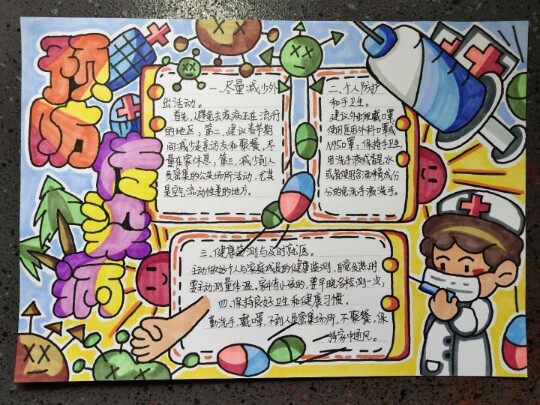 预防
一、尽量减少外
出活动。
首先，避免去疾病正在流行
的地区，第二，建议春节期
间减少走亲访友和聚餐，尽
量在家休息，第三，减少到人
员密集的公共场所活动，尤其
是空气流动性差的地方。
二、个人防护
和手卫生。
建议外出佩戴口罩
使用医用外科口罩或
N95口罩，保持手卫生
用洗手液或肥皂水
或者使用含酒精成分
分的免洗手液洗手。
三、健康监测与及时就医。
主动做好个人与家庭成员的健康监测，自觉发热时
要主动测量体温。家中有小孩的，要早晚各检测一次，
四、保持良好卫生和健康习惯。
勤洗手，戴口罩，不到人员密集场所，不聚餐，保
持家中通风。